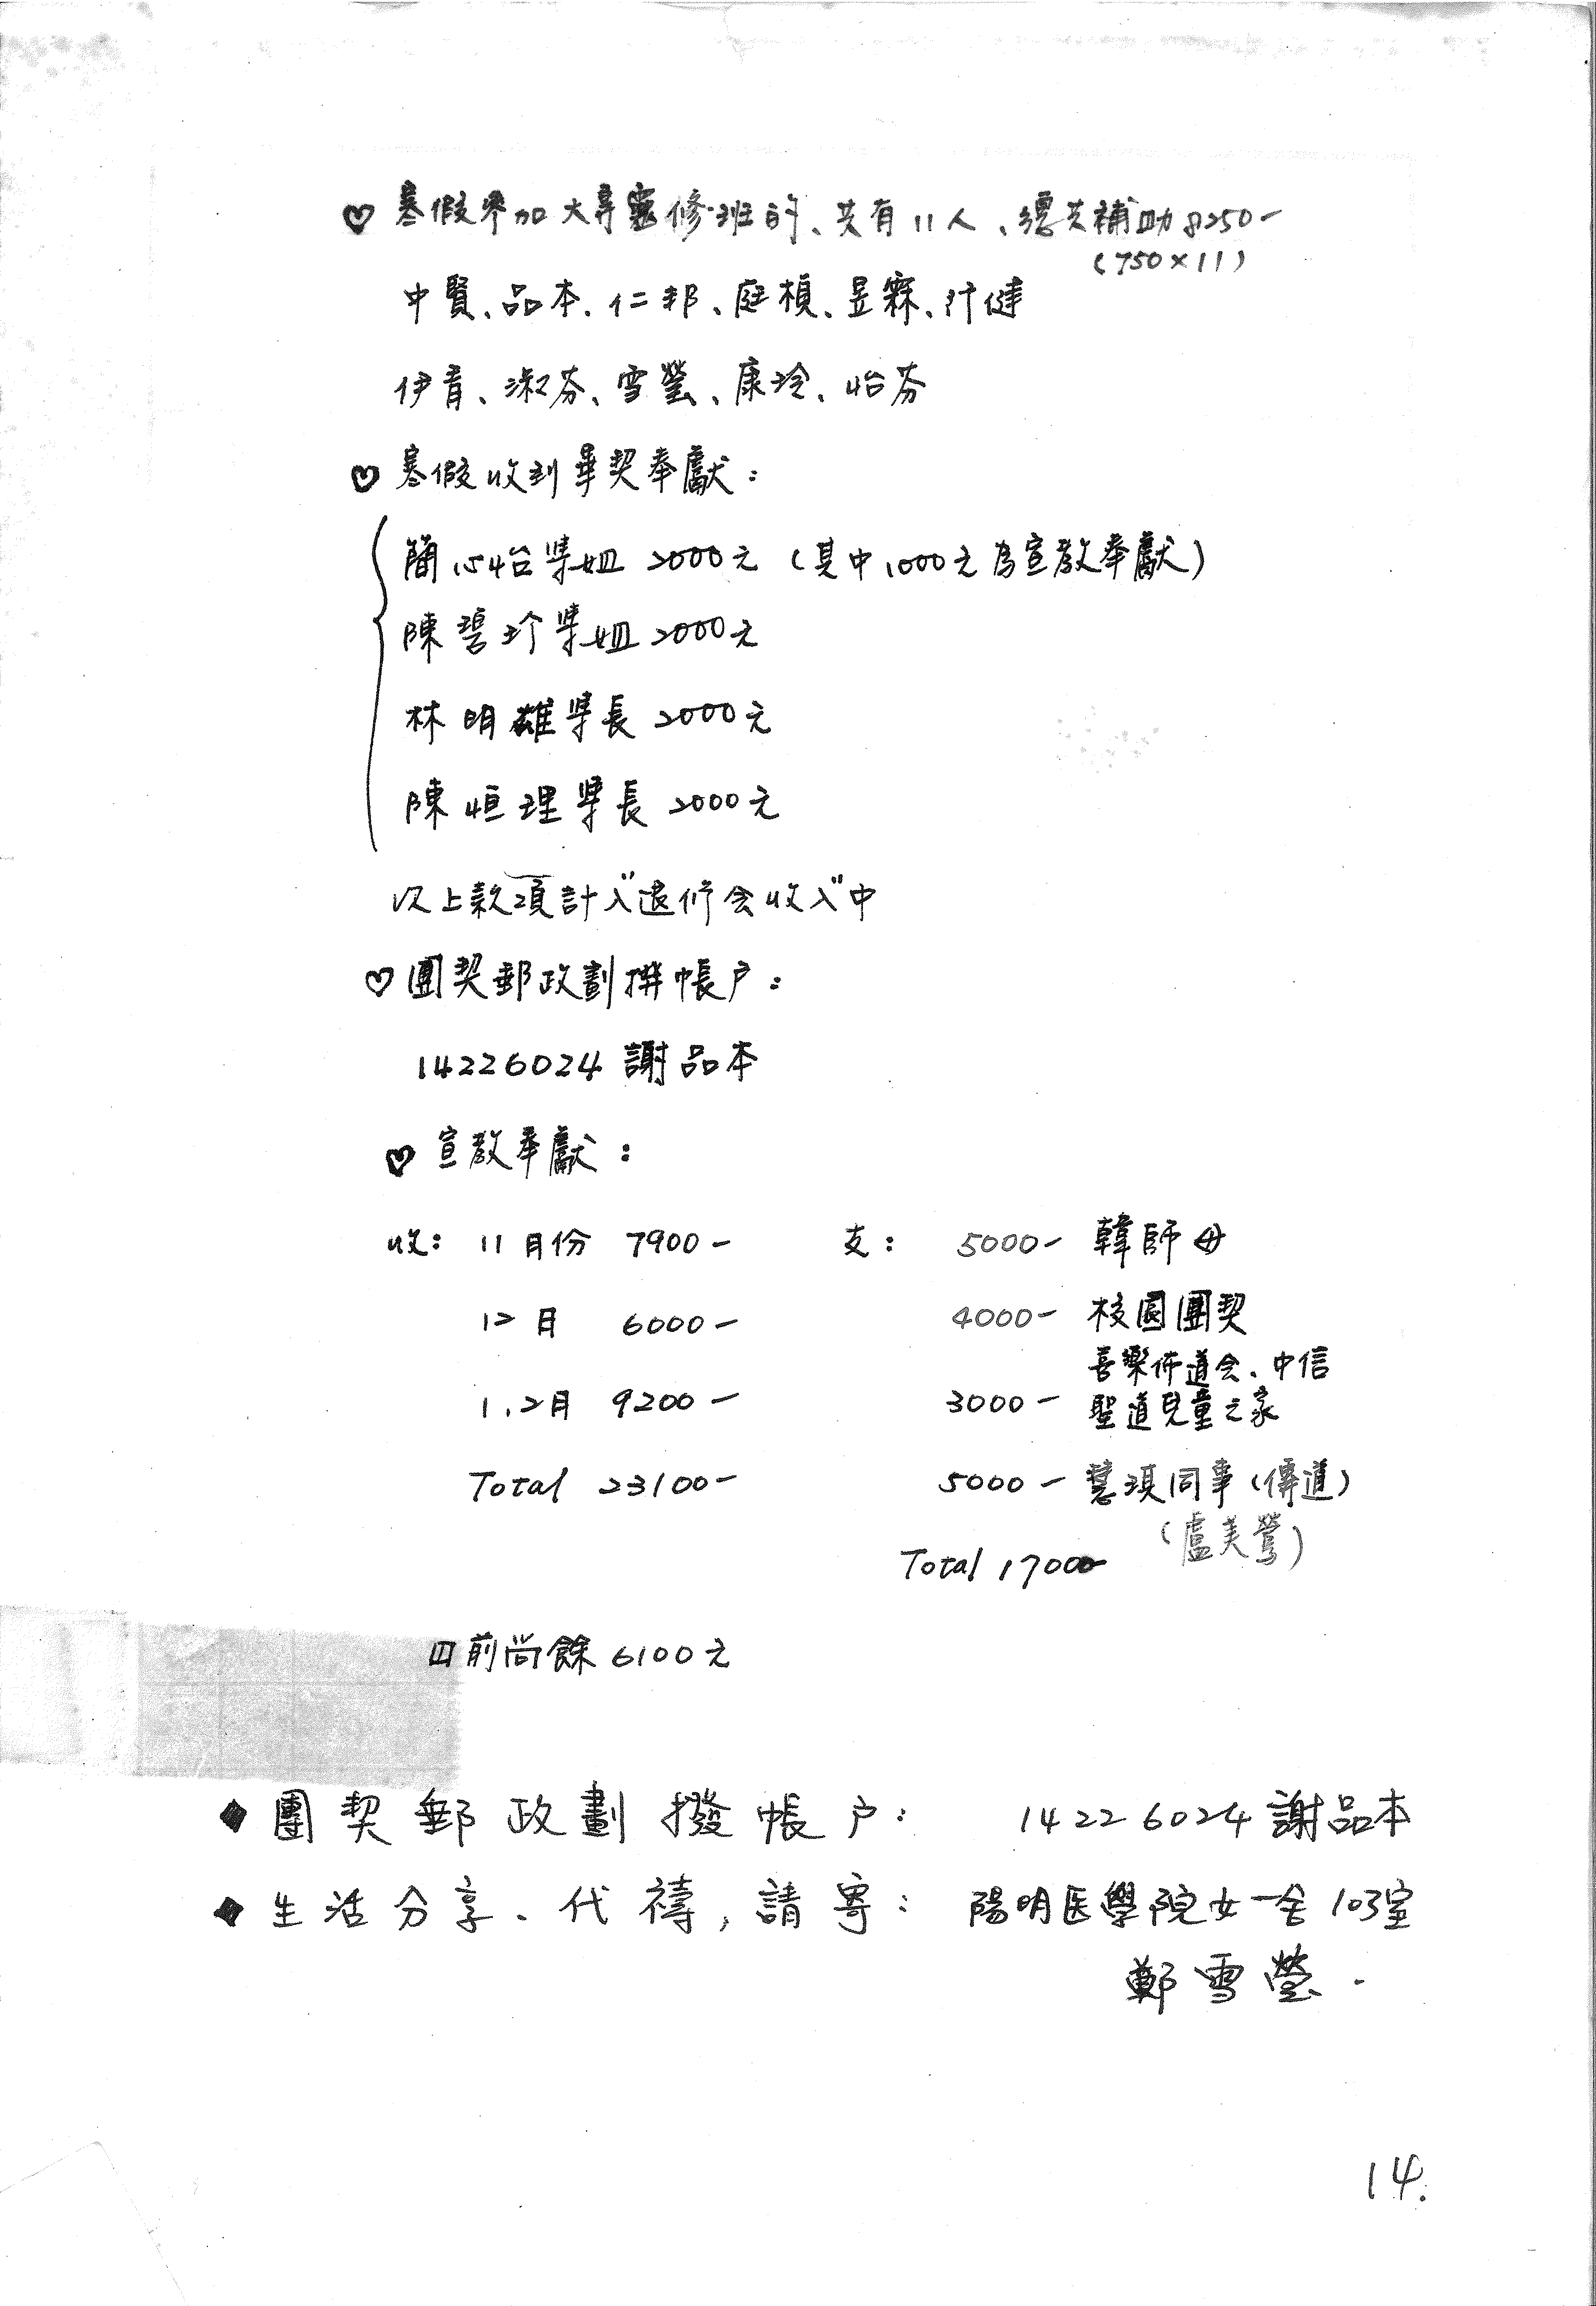 ♡ 寒假參加大專靈修班的、共有11人、總共補助8250-
(750×11)
中賢、品本、仁邦、庭楨、昱霖、行健
伊青、淑芬、雪瑩、康玲、怡芬
♡ 寒假收到畢契奉獻：
簡心怡學姐 2000元（其中1000元為宣教奉獻）
陳碧珍學姐 2000元
林明雄學長 2000元
陳恒理學長 2000元
以上款項計入"退修会收入"中
♡ 團契郵政劃撥帳戶：
14226024 謝品本
♡ 宣教奉獻：
收： 11月份 7900- 支： 5000- 韓師母
12月 6000- 4000- 校園團契
喜樂佈道会、中信
1、2月 9200- 3000- 聖道兒童之家
Total 23100- 5000- 慧琪同事（傳道）
（盧美鶯）
Total 17000-
目前尚餘6100元
◆ 團契郵政劃撥帳戶： 14226024 謝品本
◆ 生活分享、代禱，請寄： 陽明医學院女一舍103室
鄭雪瑩.
14.